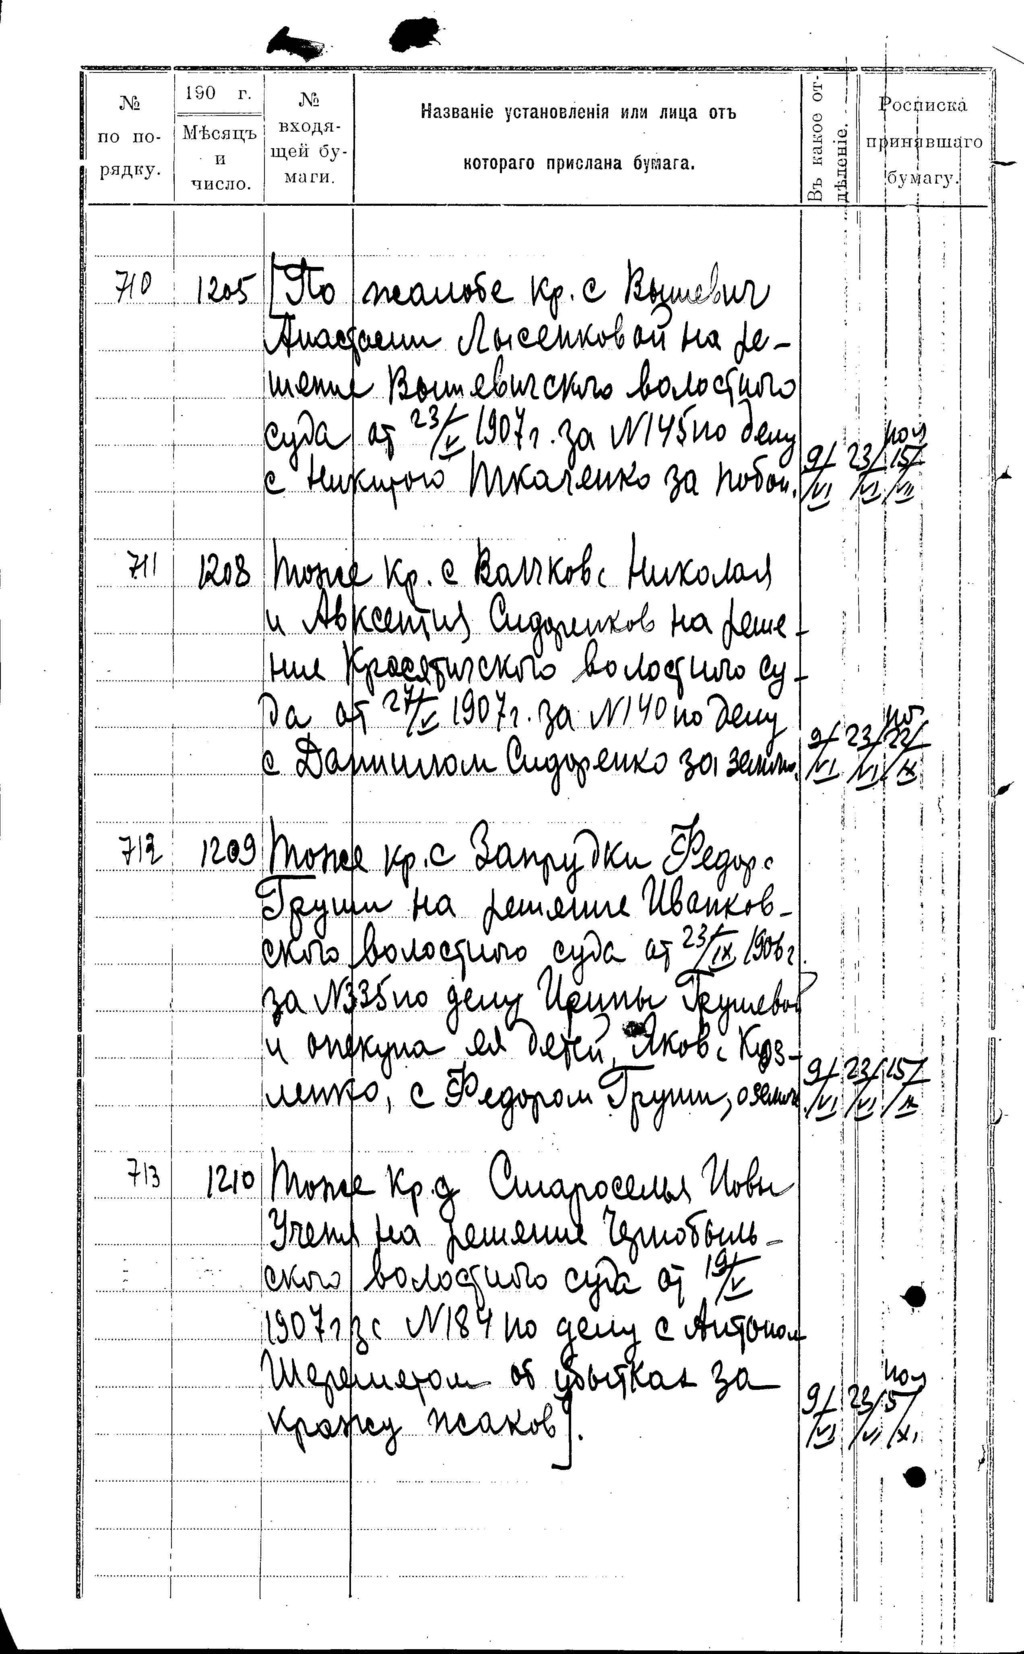 № по порядку.
190 г. Мѣсяцъ и число.
№ входящей бумаги.
Названіе установленія или лица отъ
котораго прислана бумага.
Въ какое отдѣленіе.
Росписка принявшаго бумагу.
710 1205 [По жалобе кр. с Вышевич
Анастасии Лысенковой на ре-
шение Вышевичского волостного
суда от 23/V 1907 г. за №145 по делу
с Никитою Ткаченко за побои. 9/VI 23/VI 15/VII
711 1208 Тоже кр. с Валчков. Николая
и Авксентия Сидоренков на реше-
ние Красятичского волостного су-
да от 27/V 1907 г. за №140 по делу
с Даниилом Сидоренко за землю. 9/VI 23/VI 22/IX
712 1209 Тоже кр. с Запрудки Федор.
Груши на решение Иванков-
ского волостного суда от 23/IX 1906 г.
за №335 по делу Ирины Грушевой
и опекуна ея детей, Яков. Коз-
ленко, с Федором Груши, о земле 9/VI 23/VI 15/IX
713 1210 Тоже кр. д Староселья Иовы
Ученя на решение Чернобыль-
ского волостного суда от 19/V
1907 г за №184 по делу с Антоном
Шереметом об убытках за
кражу жаков]. 9/VI 23/VI 5/XI